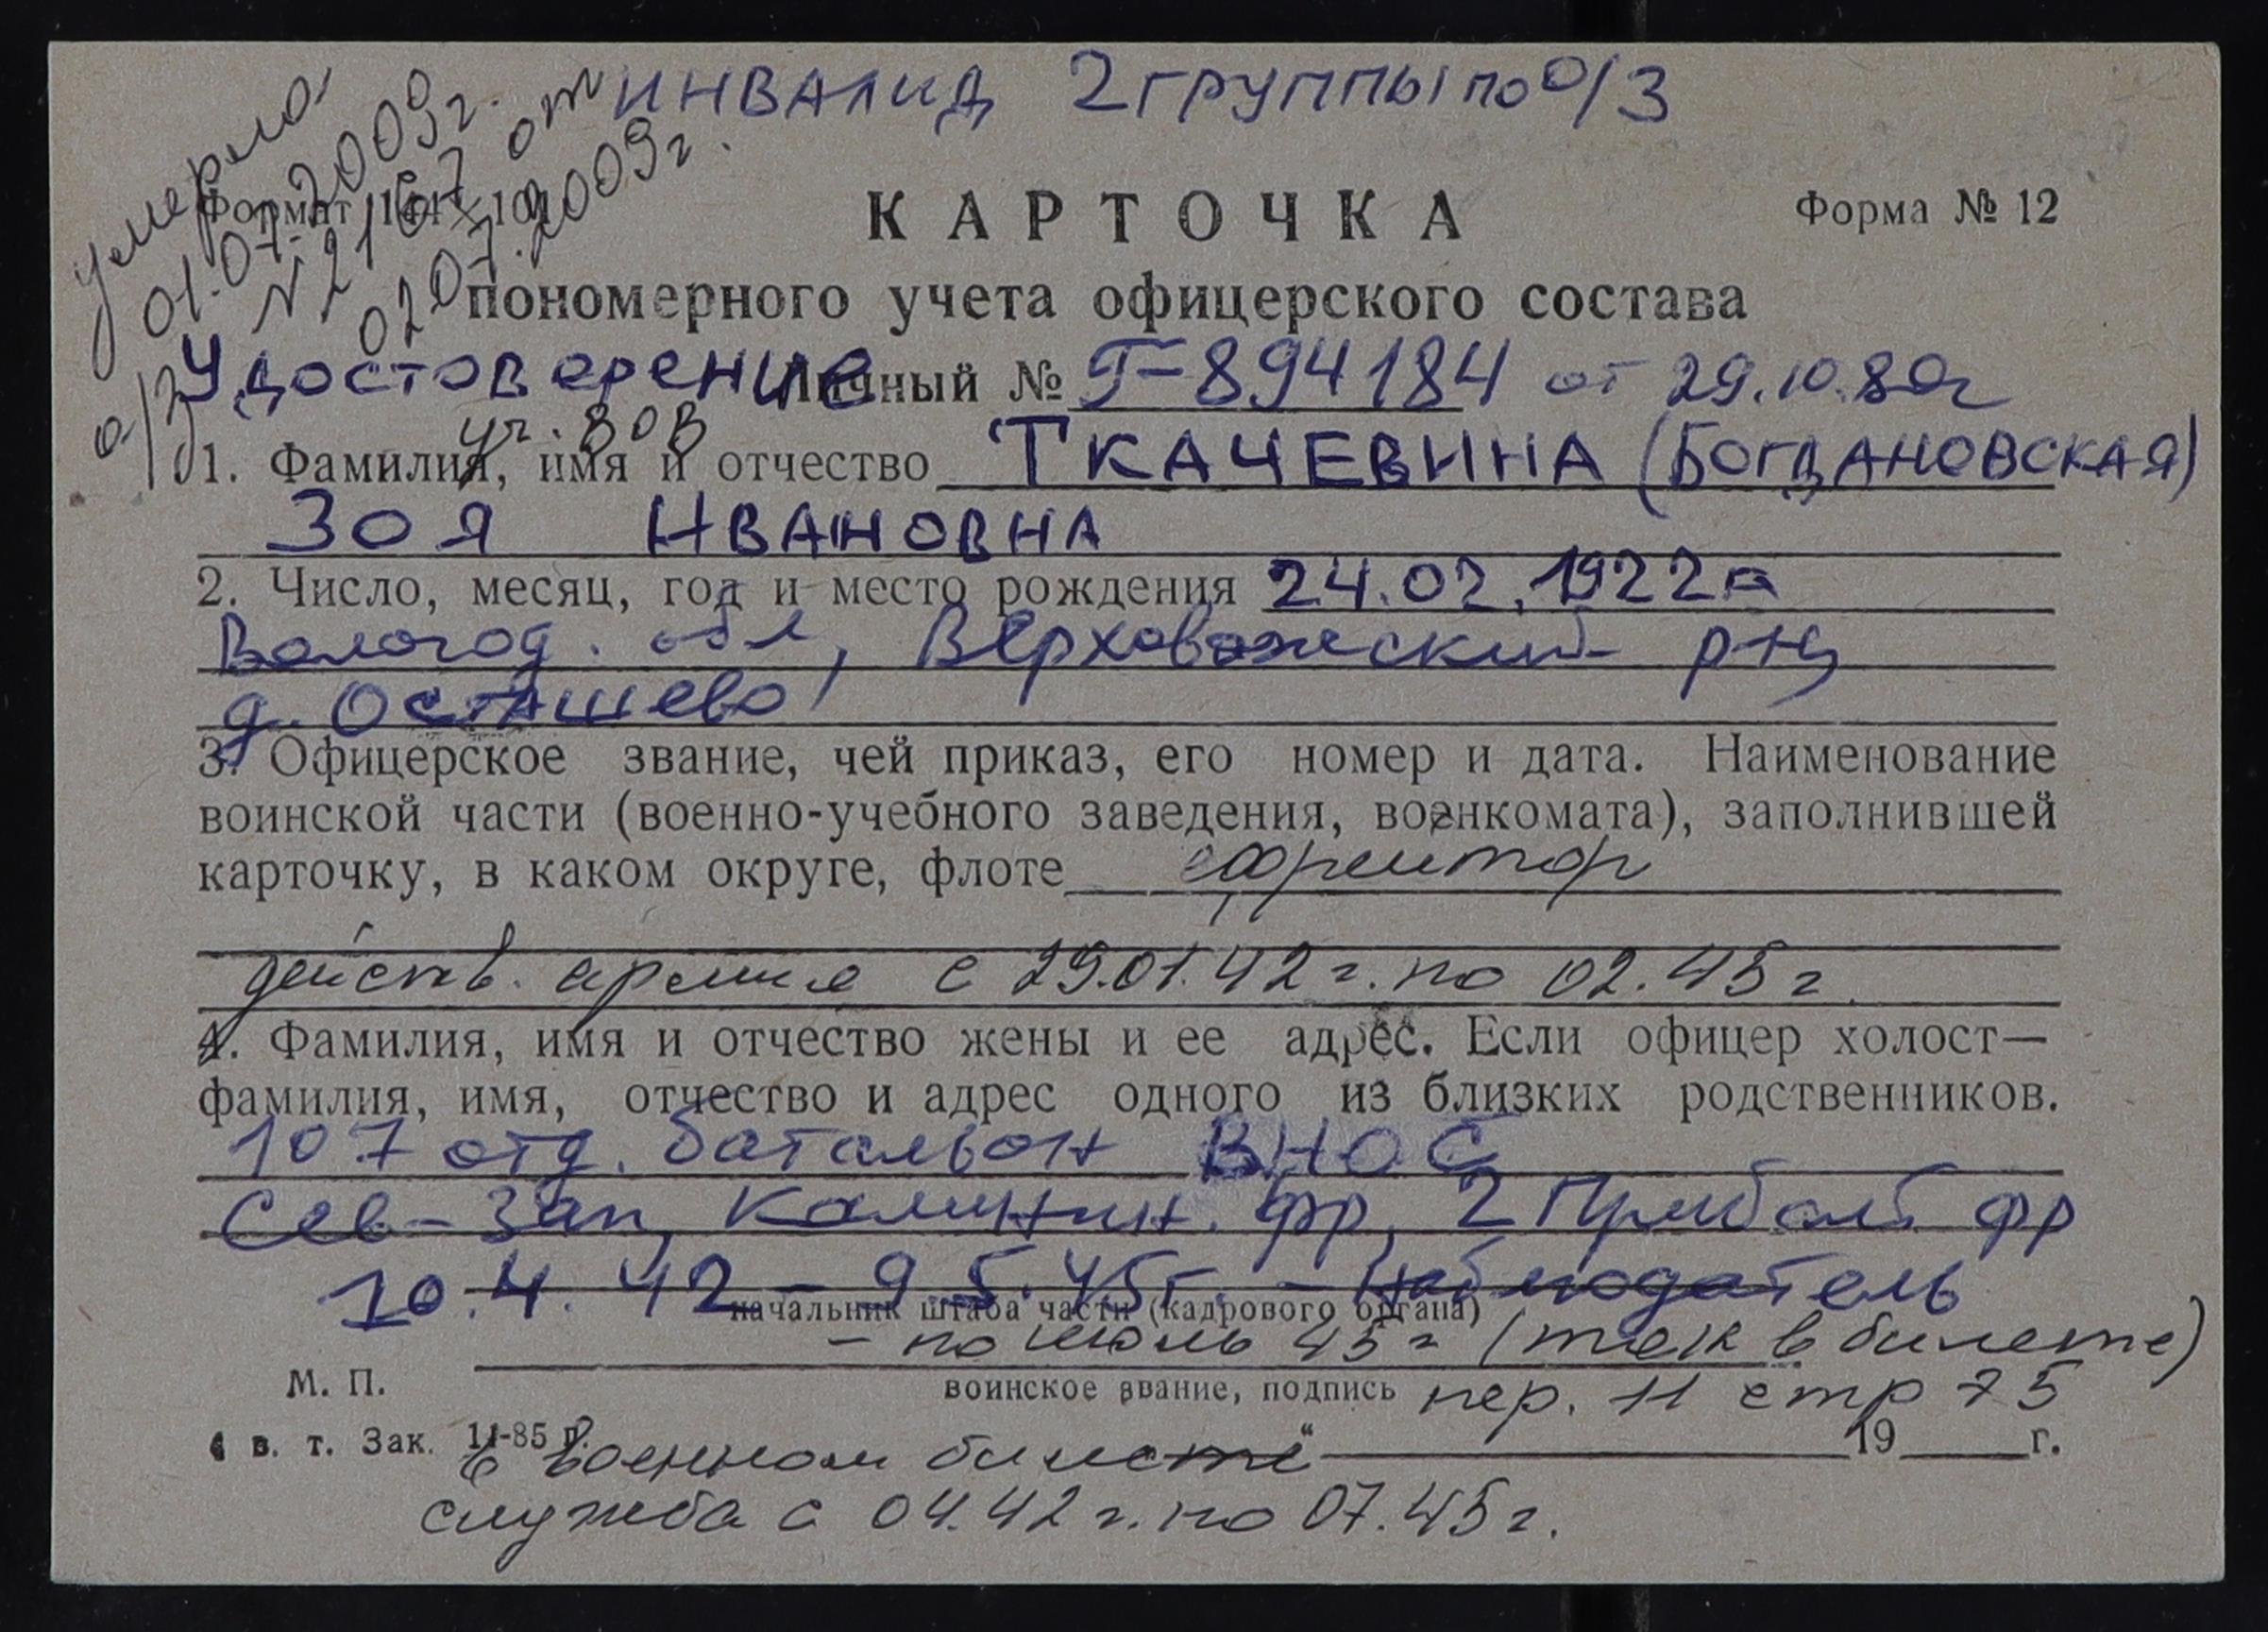 ИНВАЛИД 2 ГРУППЫ по О/З
умерла
01.07.2009г.
N 2167 от
02.07.2009г.
о/з
Формат 144×10
КАРТОЧКА
Форма № 12
пономерного учета офицерского состава
Удостоверение Личный № Г-894184 от 29.10.80г
уч. ВОВ
1. Фамилия, имя и отчество ТКАЧЕВИНА (БОГДАНОВСКАЯ)
ЗОЯ ИВАНОВНА
2. Число, месяц, год и место рождения 24.02.1922г
Вологод. обл, Верховажский р-н,
д. Осташево
3. Офицерское звание, чей приказ, его номер и дата. Наименование
воинской части (военно-учебного заведения, военкомата), заполнившей
карточку, в каком округе, флоте ефрейтор
действ. армия с 29.01.42 г. по 02.45 г.
4. Фамилия, имя и отчество жены и ее адрес. Если офицер холост—
фамилия, имя, отчество и адрес одного из близких родственников.
107 отд. батальон ВНОС
Сев-Зап, Калинин. фр, 2 Прибалт фр
10.4.42 – 9.5.45г. – Наблюдатель
начальник штаба части (кадрового органа)
– по июль 45 г (так в билете)
М. П.
воинское звание, подпись пер. 11 стр 75
в. т. Зак. 11-85 г. " 19 г.
в военном билете
служба с 04.42 г. по 07.45 г.